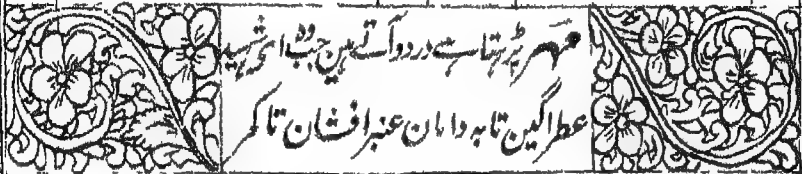 مہر پڑہتا ہے درود آتے ہین جب وہ اے شہید
عطر آگین تا بہ دامان عنبر افشان تا کمر